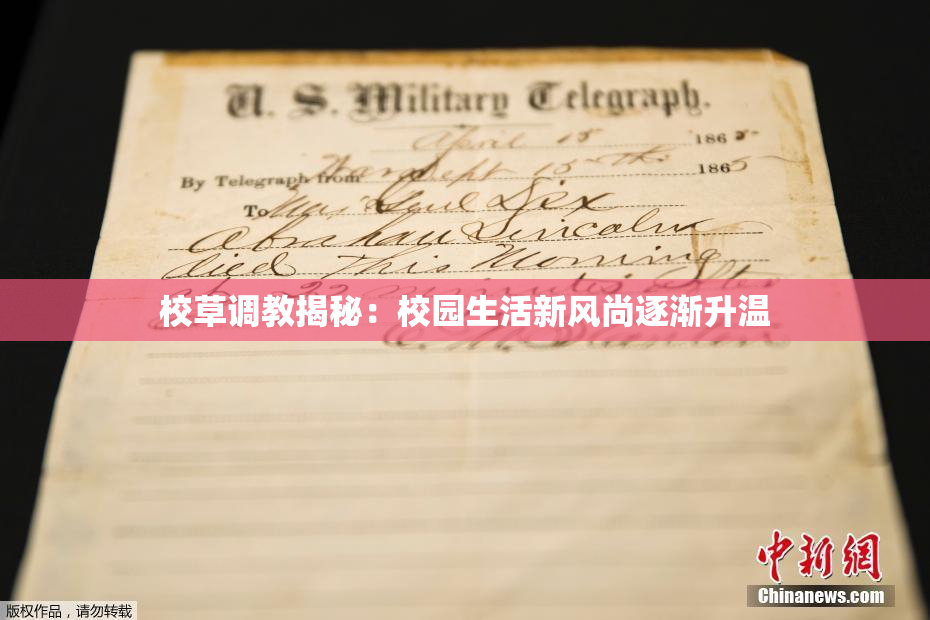 U. S. Military Telegraph.
April 15 1865
By Telegraph from War Dept 15th 1865
To Maj Genl Dix
Abraham Lincoln
died This Morning
at 22 minutes after
校草调教揭秘：校园生活新风尚逐渐升温
E. M. Stanton
中新网
Chinanews.com
版权作品，请勿转载